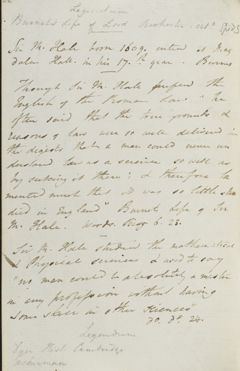 Legendum
Burnet's life of Lord Rochester
Sir M. Hale born 1609. entered at Mag
dalen Hall. in his 17th year. Burnet
Though Sir M. Hale preferred the
English to the Roman Law "he
often said that the true grounds &
reasons of law were so well delivered in
the digests that a man could never un
derstand law as a science so well as
by seeking it there; & therefore la
mented much that it was so little stu
died in England" Burnet's life of Sir
M. Hale. Works. p. 23.
Sir M. Hale studied the mathematics
& Physical sciences & used to say
"no man could be absolutely a master
in any profession without having
some skill in other sciences"
Do. Do. 24.
Legendum
Dyer Hist. Cambridge